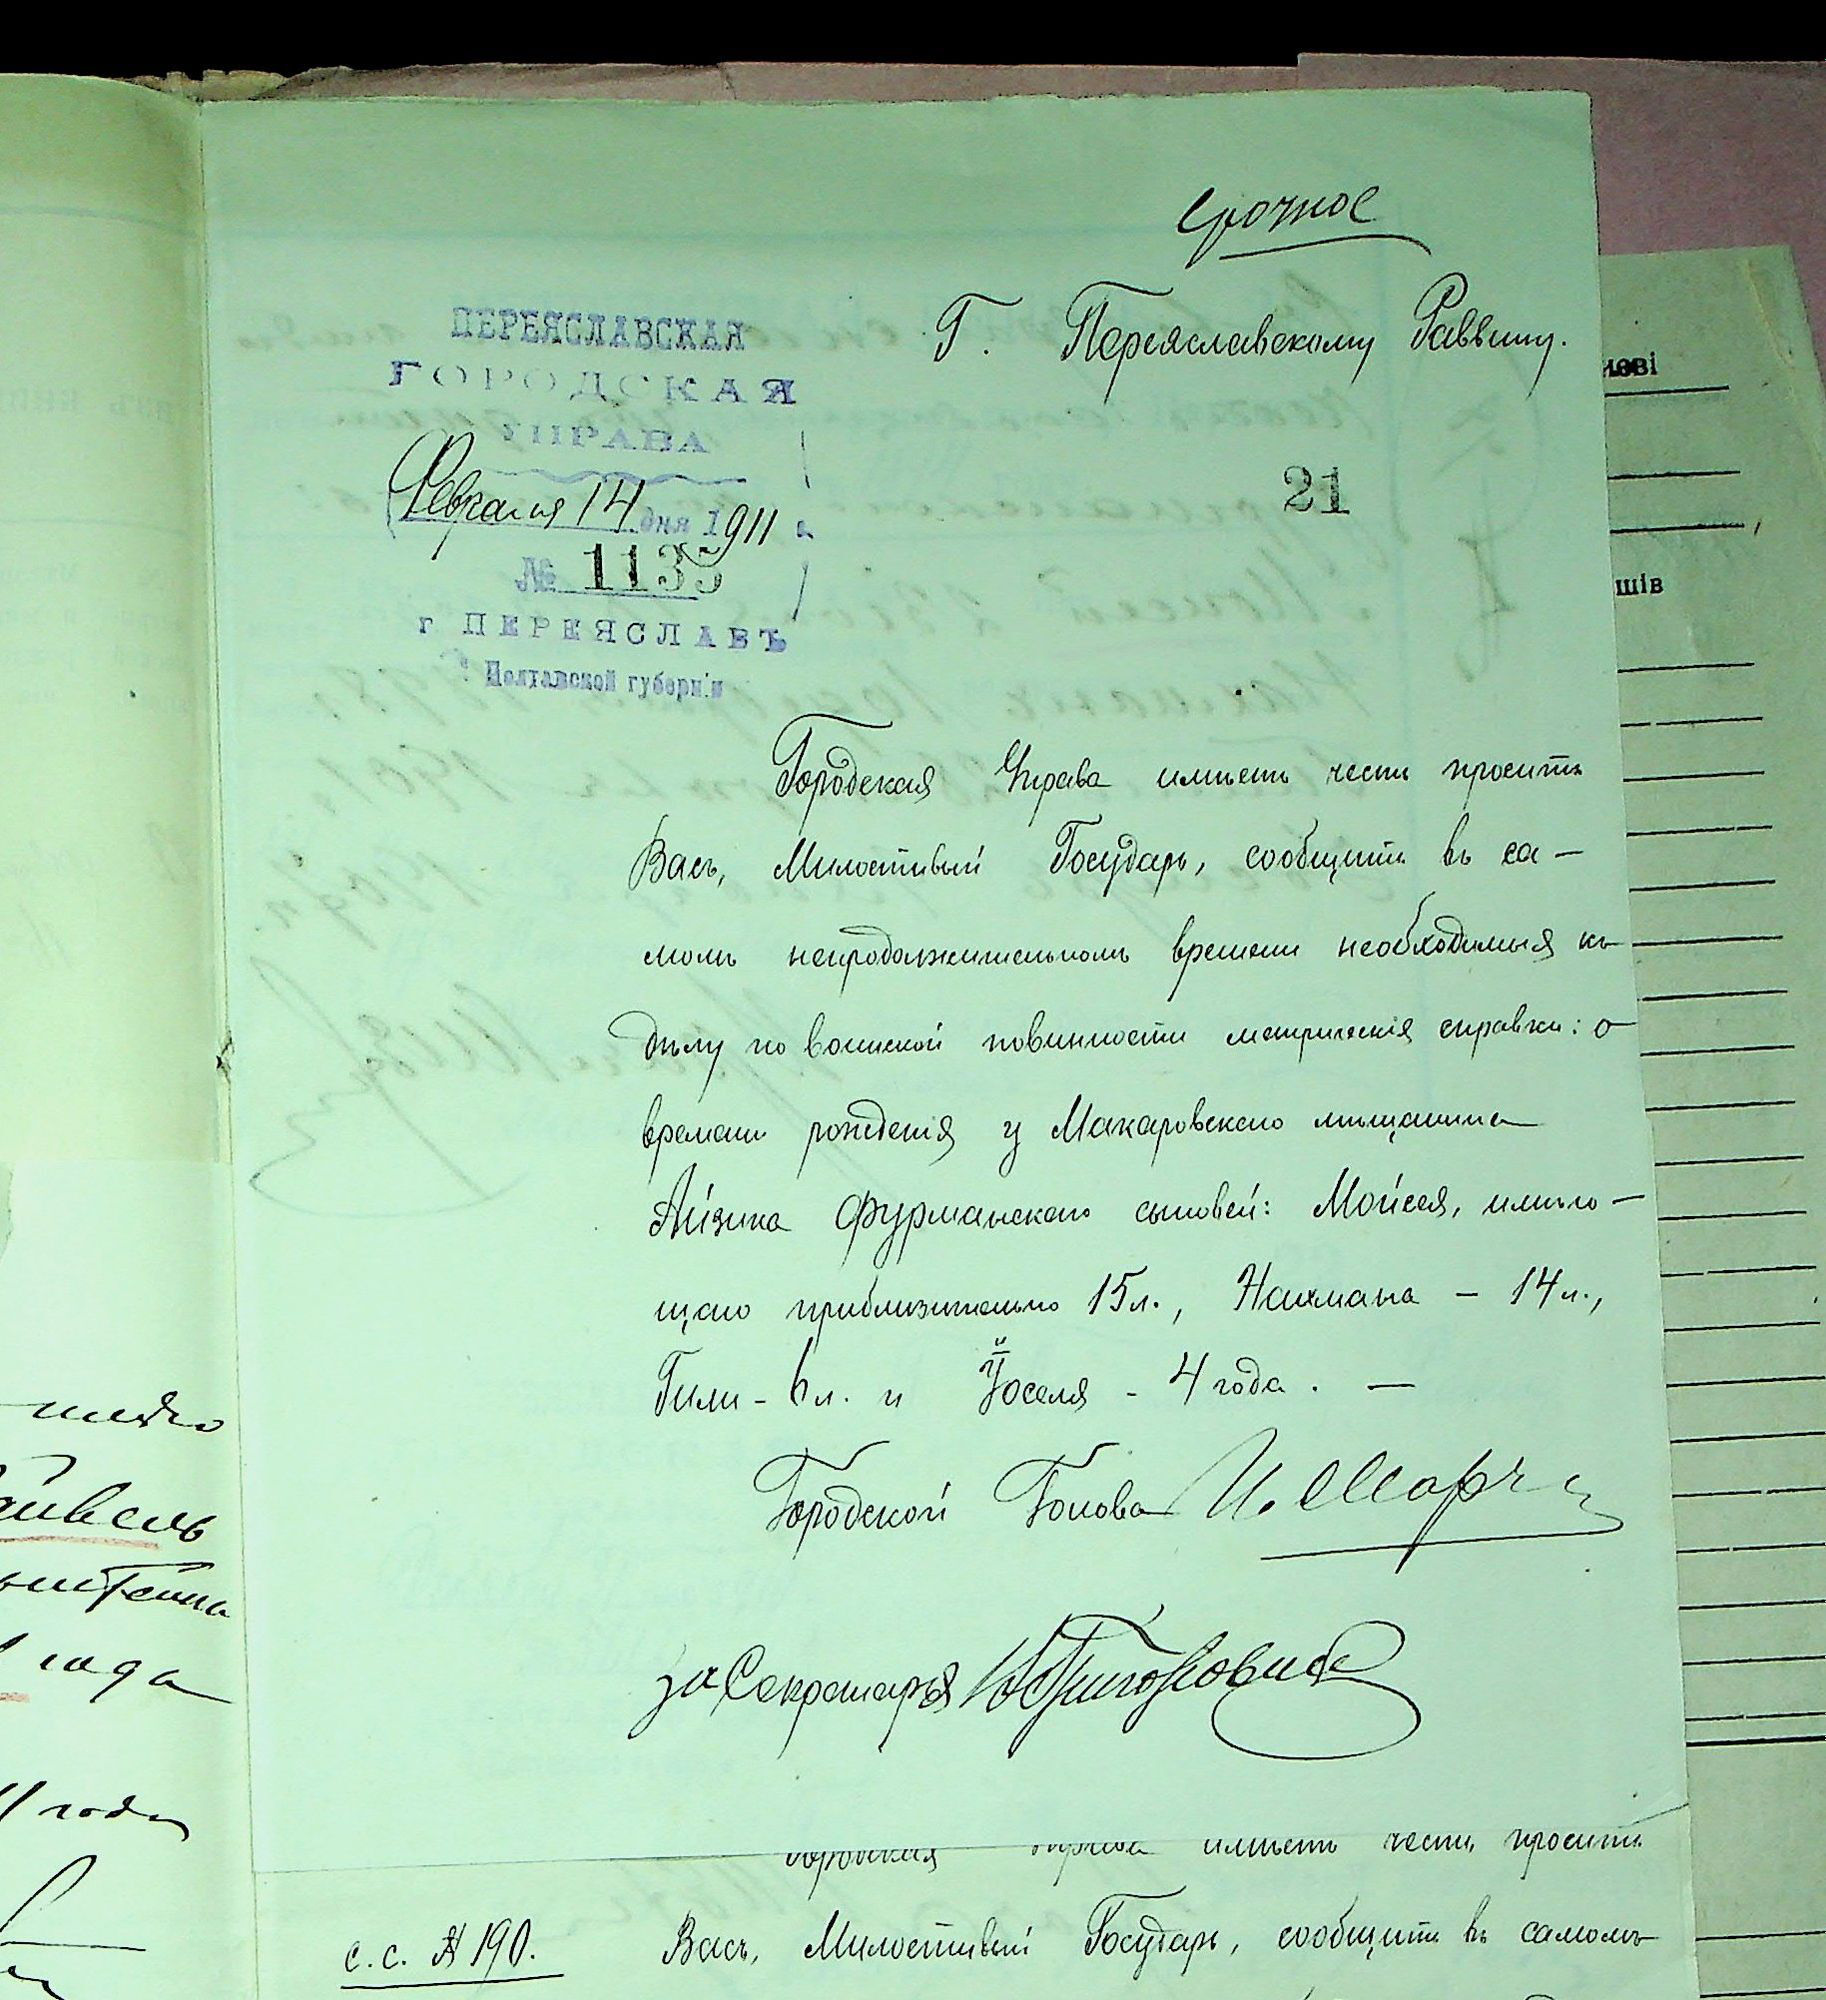 срочное
Г. Переяславскому Раввину.
ПЕРЕЯСЛАВСКАЯ
ГОРОДСКАЯ
УПРАВА
Февраля 14 дня 1911 г.
№ 1135
г ПЕРЕЯСЛАВЪ
Полтавской губернiи
21
Городская Управа имѣетъ честь просить
Васъ, Милостивый Государь, сообщить въ са-
момъ непродолжительномъ времени необходимыя къ
дѣлу по воинской повинности метрическiя справки: о
времени рожденiя у Макаровскаго мѣщанина
Айзика Фурманскаго сыновей: Мойсея, имѣю-
щаго приблизительно 15 л., Нахмана - 14 л.,
Гили - 6 л. и Йоселя - 4 года. -
Городской Голова И. Марч
за Секретаря Григорович
Городская Управа имѣетъ честь просить
с.с. № 190.
Васъ, Милостивый Государь, сообщить въ самомъ
года
11 года
нові
шів